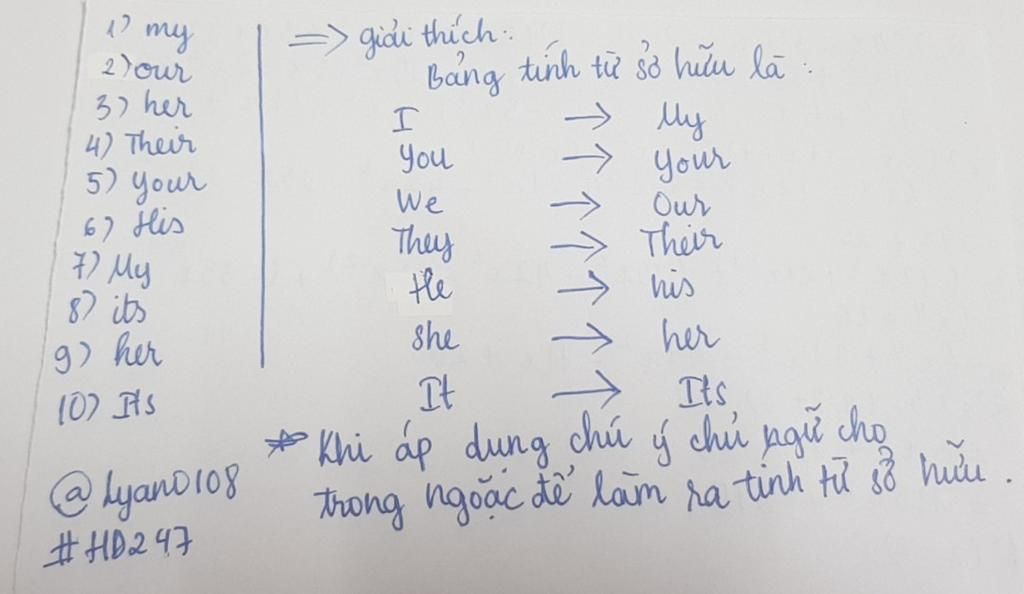 1) my
2) our
3) her
4) Their
5) your
6) His
7) My
8) its
9) her
10) Its
@Lyan0108
#HD247
=> giải thích:
Bảng tính từ sở hữu là:
I → My
you → your
We → Our
They → Their
He → his
she → her
It → Its
* Khi áp dụng chú ý chủ ngữ cho
trong ngoặc để làm ra tính từ sở hữu.